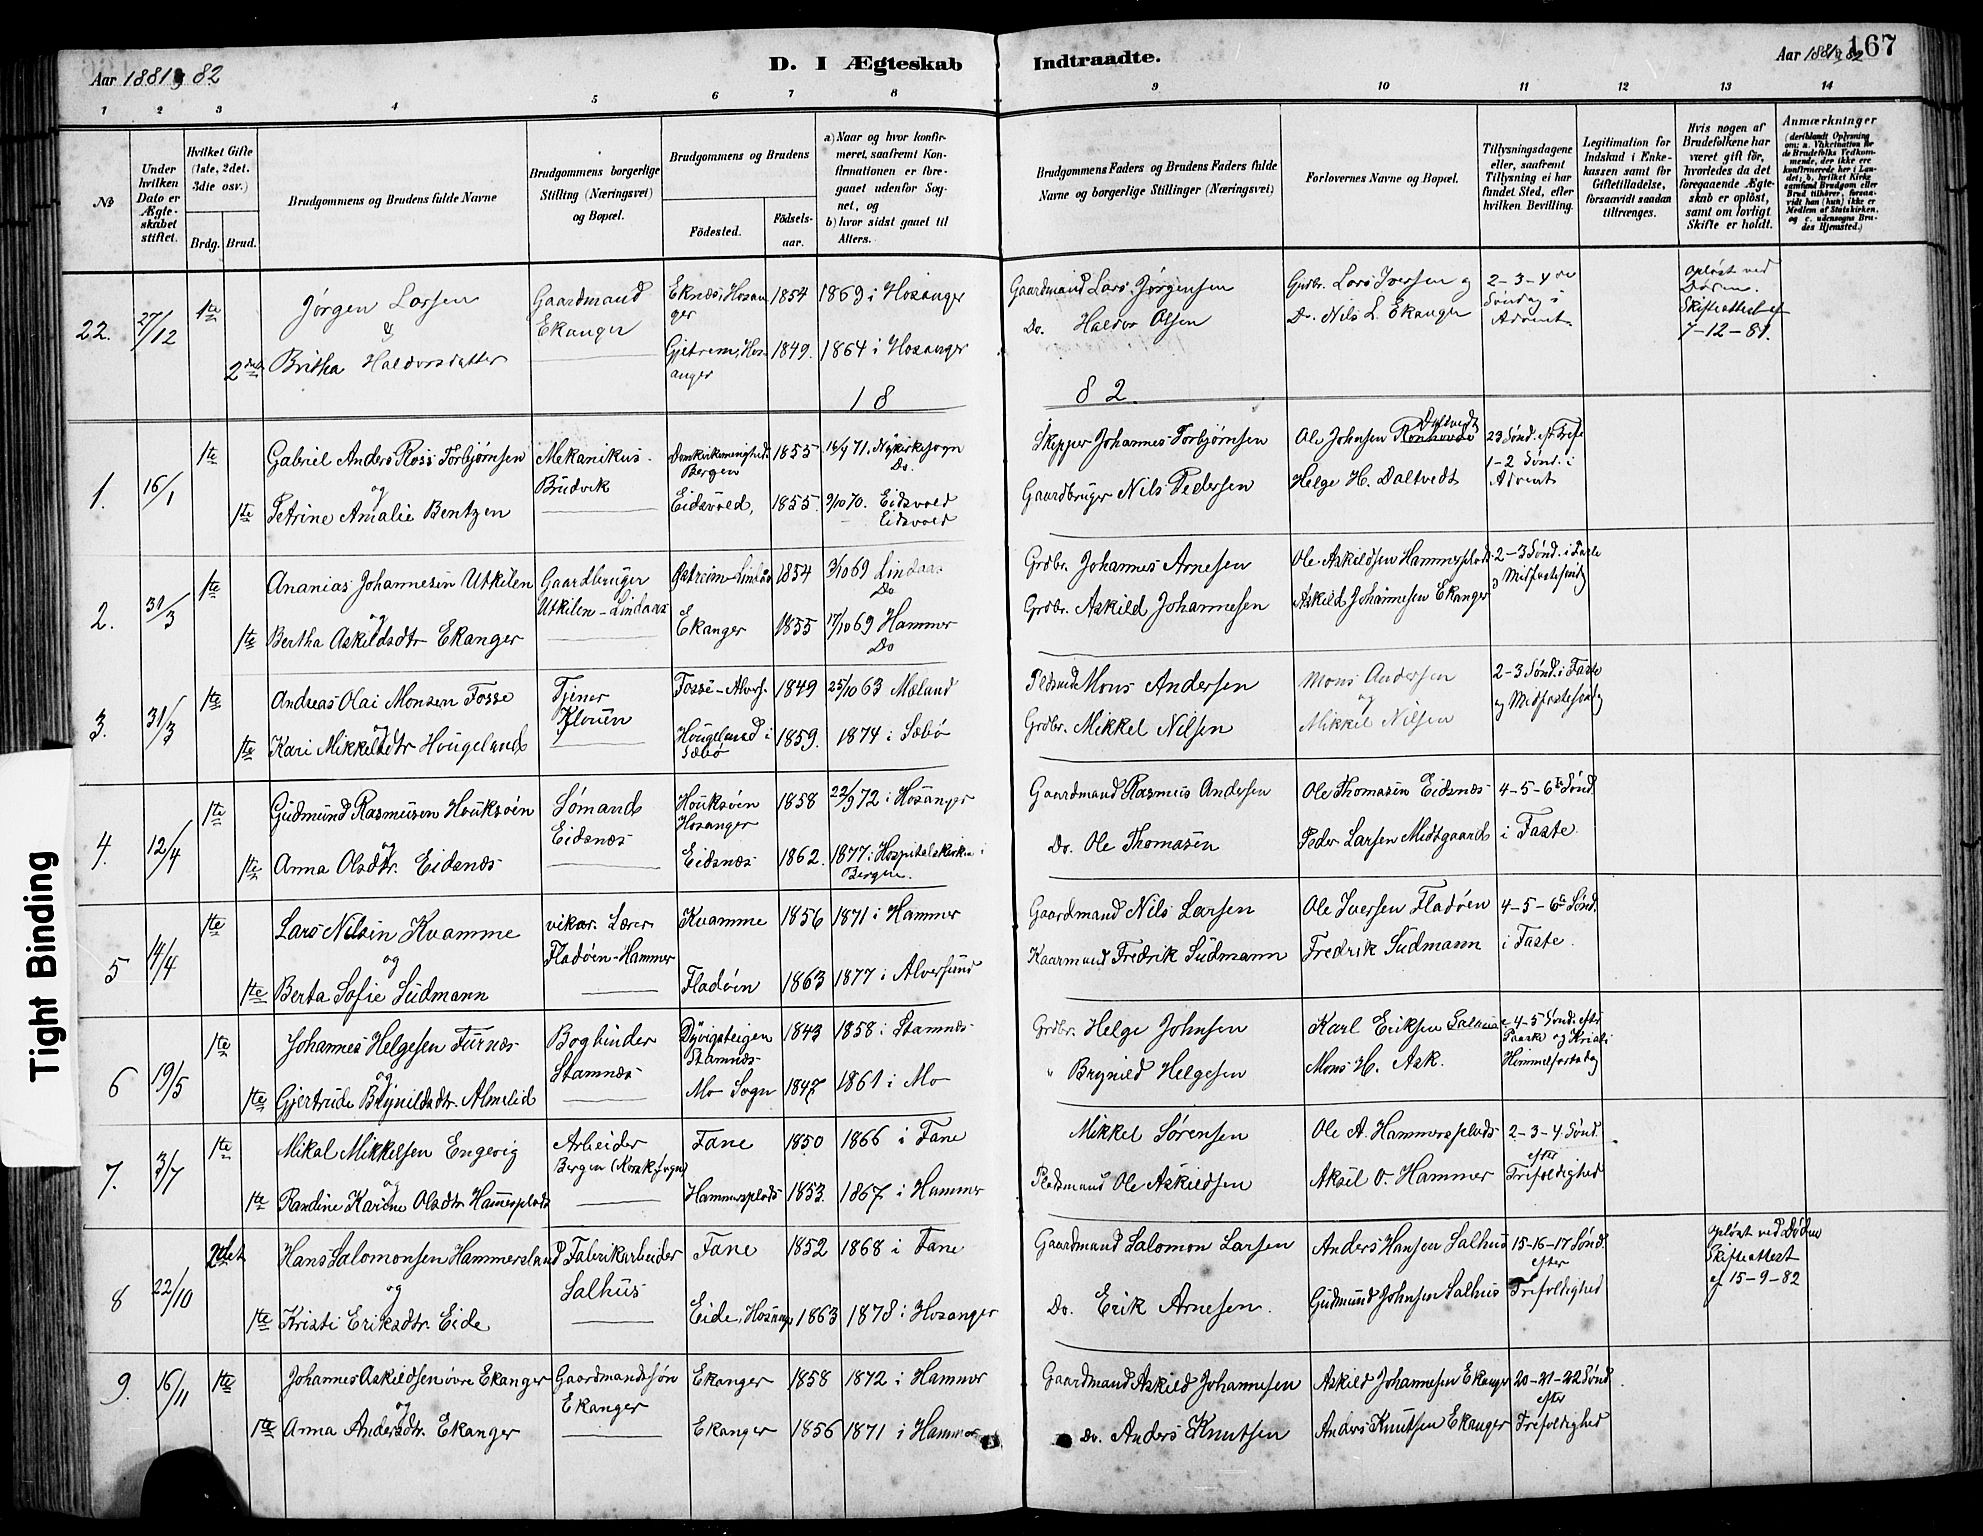 Aar 1881 og 82
D. I Ægteskab Indtraadte.
Aar 1881 og 82
167
1 2 3 4 5 6 7 8 9 10 11 12 13 14
No
Under hvilken Dato er Ægteskabet stiftet.
Hvilket Gifte (1ste, 2det. 3die osv.)
Brdg. Brud.
Brudgommens og Brudens fulde Navne
Brudgommens borgerlige Stilling (Næringsvei) og Bopæl.
Brudgommens og Brudens
Fødested.
Fødselsaar.
a) Naar og hvor konfirmeret, saafremt Konfirmationen er foregaaet udenfor Sognet, og
b) hvor sidst gaaet til Alters.
Brudgommens Faders og Brudens Faders fulde Navne og borgerlige Stillinger (Næringsvei)
Forlovernes Navne og Bopæl.
Tillysningsdagene eller, saafremt Tillysning ei har fundet Sted, efter hvilken Bevilling.
Legitimation for Indskud i Enkekassen samt for Giftetilladelse, forsaavidt saadan tiltrænges.
Hvis nogen af Brudefolkene har været gift før, hvorledes da det foregaaende Ægteskab er opløst, samt om lovligt Skifte er holdt.
Anmærkninger (deriblandt Oplysning om: a. Vakcination for de Brudefolks Vedkommende, der ikke ere konfirmerede her i Landet; b. hvilket Kirkesamfund Brudgom eller Brud tilhører, forsaavidt han (hun) ikke er Medlem af Statskirken, og c. udensogns Brudes Hjemsted.)
22. 27/12 1ste Jørgen Larsen Gaardmand Eknæs, Hosanger 1854 1869 i Hosanger Gaardmand Lars Jørgensen Grdbr. Lars Iversen og 2-3-4de Søndag i Advent. Opløst ved Døden. Skifteattest af 7-12-81.
& Ekanger
2den Britha Haldorsdatter Gjetrem, Hosanger 1849. 1864 i Hosanger Do. Haldor Olsen Do. Nils L. Ekanger
18 82.
1. 16/1 1ste Gabriel Anders Ross Torbjørnsen Mekanikus Domkirkemenighed. Bergen 1855 16/4 71. Nykirkesogn Do. Skipper Johannes Torbjørnsen Ole Johnsen Daltvedt 23 Sønd. eft Trefo 1-2 Sønd. i Advent
og Brudvik
1ste Petrine Amalie Bentzen Eidsvold, 1855. 9/10 70. Eidsvold Eidsvold Gaardbruger Nils Pedersen Helge H. Daltvedt
2. 31/3 1ste Ananias Johannesen Utkilen Gaardbruger Østreim-Lindås 1854 3/10 69 Lindaas Do Grdbr. Johannes Arnesen Ole Askildsen Hammersplads 2-3 Sønd. i Faste og Midfastesøndag
og Utkilen-Lindaas
1ste Bertha Askildsdtr Ekanger Ekanger 1855 17/10 69 Hammer Do Grdbr. Askild Johannesen Askild Johannesen Ekanger
3. 31/3 1ste Andreas Olai Monsen Fosse Tjener Fosse-Alvers. 1849 25/10 63 Mæland Pldsmd Mons Andersen Mons Andersen 2-3 Sønd. i Faste og Midfastesøndag
og Flouen og
1ste Kari Mikkelsdtr Hougeland Hougeland i Sæbø 1859. 1874 i Sæbø Grdbr. Mikkel Nilsen Mikkil Nilsen
4. 12/4 1ste Gudmund Rasmusen Houksøen Sømand Houksøen Hosanger 1858 22/9 72 i Hosanger Gaardmand Rasmus Andersen Ole Thomasen Eidsnæs 4-5-6te Sønd. i Faste
og Eidsnæs
1ste Anna Olsdtr. Eidsnæs Eidsnæs 1862. 1877 i Hospitalskirken i Bergen. Do. Ole Thomasen Peder Larsen Midtgaard
5 14/4 1ste Lars Nilsen Kvamme vikar. Lærer Kvamme 1856 1871 i Hammer Gaardmand Nils Larsen Ole Iversen Fladøen 4-5-6te Sønd. i Faste.
og Fladøen-Hammer
1ste Berta Sofie Sudmann Fladøen 1863 1877 i Alversund Kaarmand Fredrik Sudmann Fredrik Sudmann
6 19/5 1ste Johannes Helgesen Furnæs Bogbinder Dyvigsteigen Stamnæs 1843 1858 i Stamnæs Grdbr. Helge Johnsen Karl Eriksen Salhus 4-5 Sønd. efter Paaske og Kristi Himmelfartsdag
og Stamnæs
1ste Gjertrude Brynildsdtr. Almelid Mo Sogn 1847 1861 i Mo " Brynild Helgesen Mons H. Ask.
7. 3/7 1ste Mikal Mikkelsen Engevig Arbeider Fane 1850 1866 i Fane Mikkel Sørensen Ole A. Hammersplads 2-3-4 Sønd. efter Trefoldighed
og Bergen (Korskisogn)
1ste Randine Karine Olsdtr Hammersplads Hammersplads 1853. 1867 i Hammer Pladsmand Ole Askildsen Aksel O. Hammer
8 22/10 2det Hans Salomonsen Hammersland Fabrikarbeider Fane 1852 1868 i Fane Gaardmand Salomon Larsen Anders Hansen Salhus 15-16-17 Sønd. efter Trefoldighed opløst ved Døden Skifteattest af 15-9-82
og Salhus
1ste Kristi Eriksdtr. Eide Eide, Hosanger 1863 1878 i Hosanger Do. Erik Arnesen. Gudmund Johnsen Salhus
9. 16/11 1ste Johannes Askildsen øvre Ekanger Gaardmandssøn Ekanger 1858 1872 i Hammer Gaardmand Askild Johannesen Askild Johannesen Ekanger 20-21-22 Sønd. efter Trefoldighed
og Ekanger
1ste Anna Andersdtr. Ekanger Ekanger 1856 1871 i Hammer Do. Anders Knutsen Anders Knutsen Ekanger
Tight Binding